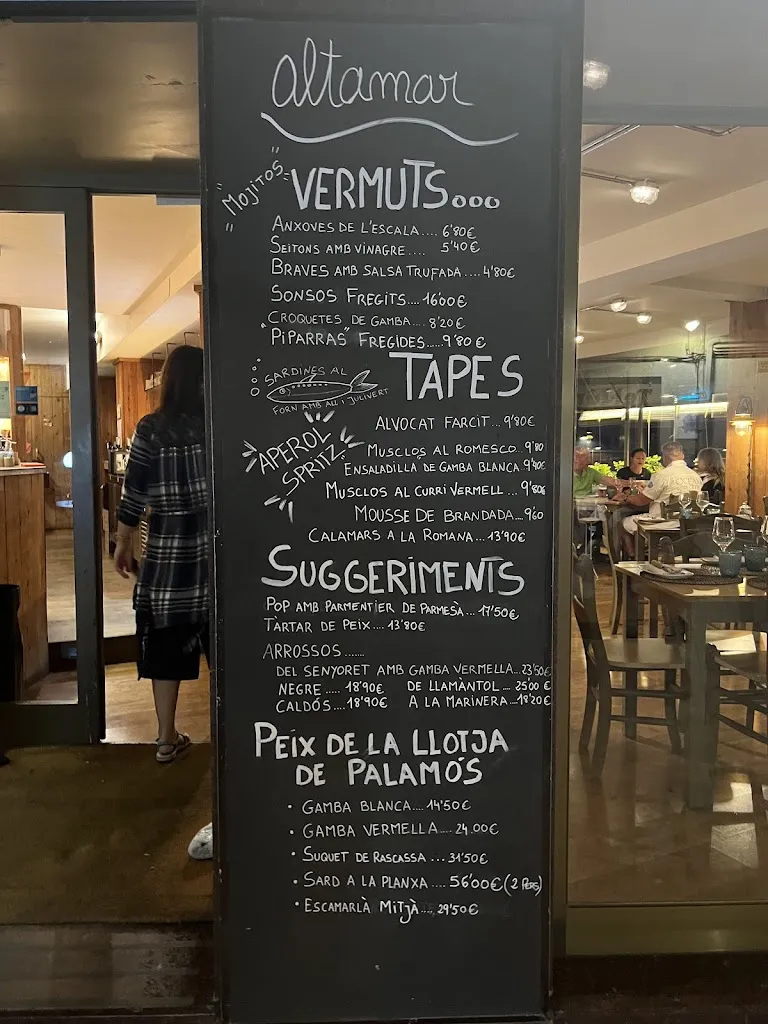 altamar
"Mojitos"
VERMUTS...
ANXOVES DE L'ESCALA.... 6'80€
SEITONS AMB VINAGRE.... 5'40€
BRAVES AMB SALSA TRUFADA....4'80€
SONSOS FREGITS....16'00€
CROQUETES DE GAMBA....8'20€
"PIPARRAS" FREGIDES.....9'80€
TAPES
SARDINES AL
FORN AMB ALL I JULIVERT
APEROL
SPRITZ
ALVOCAT FARCIT...9'80€
MUSCLOS AL ROMESCO..9'80
ENSALADILLA DE GAMBA BLANCA.9'40€
MUSCLOS AL CURRI VERMELL...9'80€
MOUSSE DE BRANDADA...9'60
CALAMARS A LA ROMANA...13'90€
SUGGERIMENTS
POP AMB PARMENTIER DE PARMESÀ...17'50€
TÀRTAR DE PEIX....13'80€
ARROSSOS.......
DEL SENYORET AMB GAMBA VERMELLA...23'50€
NEGRE.....18'90€ DE LLAMÀNTOL...25'00€
CALDÓS....18'90€ A LA MARINERA...18'20€
PEIX DE LA LLOTJA
DE PALAMÓS
• GAMBA BLANCA....14'50€
• GAMBA VERMELLA....24.00€
• SUQUET DE RASCASSA...31'50€
• SARD A LA PLANXA....56'00€(2 PERS)
• ESCAMARLÀ MITJÀ....29'50€